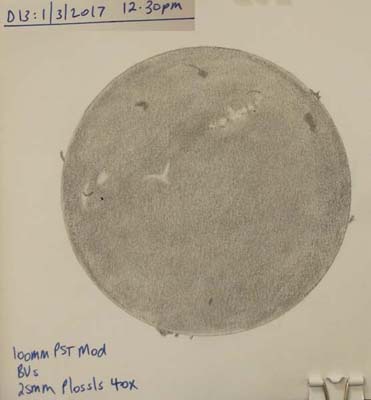 D13: 1/3/2017 12.30pm
100mm PST Mod
BVs
25mm Plossls 40x